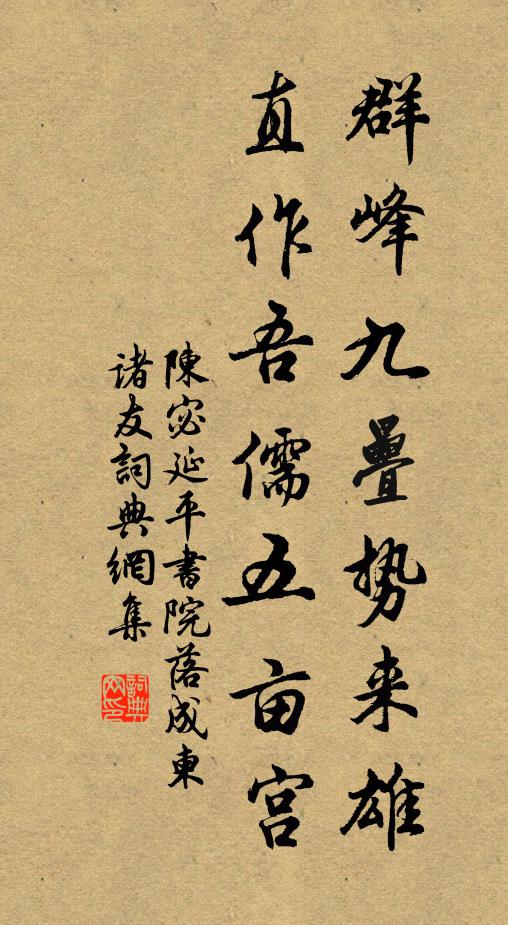 群峰九疊势来雄
直作吾儒五亩宫
陳宓延平書院落成東
诸友詞典網集
詞典